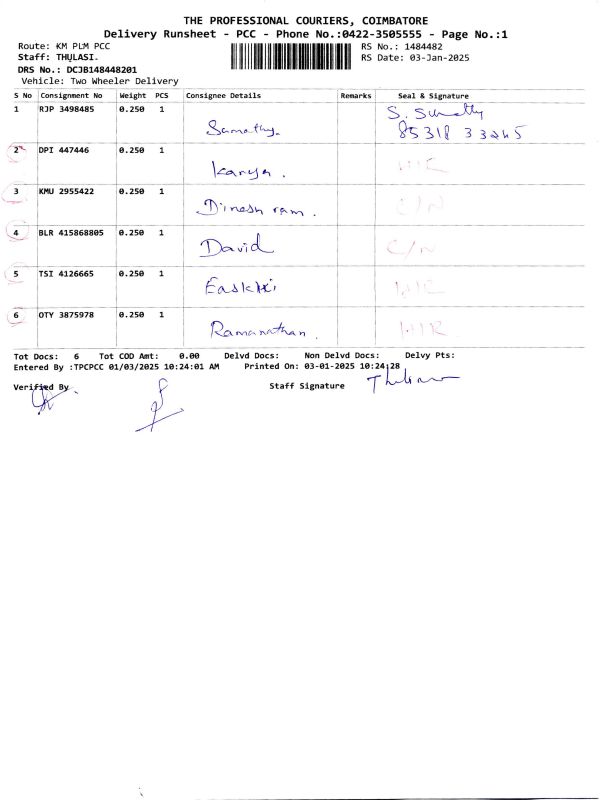 THE PROFESSIONAL COURIERS, COIMBATORE
Delivery Runsheet - PCC - Phone No.:0422-3505555 - Page No.:1
Route: KM PLM PCC RS No.: 1484482
Staff: THULASI. RS Date: 03-Jan-2025
DRS No.: DCJB148448201
Vehicle: Two Wheeler Delivery
S No Consignment No Weight PCS Consignee Details Remarks Seal & Signature
1 RJP 3498485 0.250 1 Sumathy. S. Sumathy
85318 33245
2 DPI 447446 0.250 1 Kanya.
3 KMU 2955422 0.250 1 Dinesh ram. C/N
4 BLR 415868805 0.250 1 David C/N
5 TSI 4126665 0.250 1
6 OTY 3875978 0.250 1 Ramanathan.
Tot Docs: 6 Tot COD Amt: 0.00 Delvd Docs: Non Delvd Docs: Delvy Pts:
Entered By :TPCPCC 01/03/2025 10:24:01 AM Printed On: 03-01-2025 10:24:28
Verified By Staff Signature